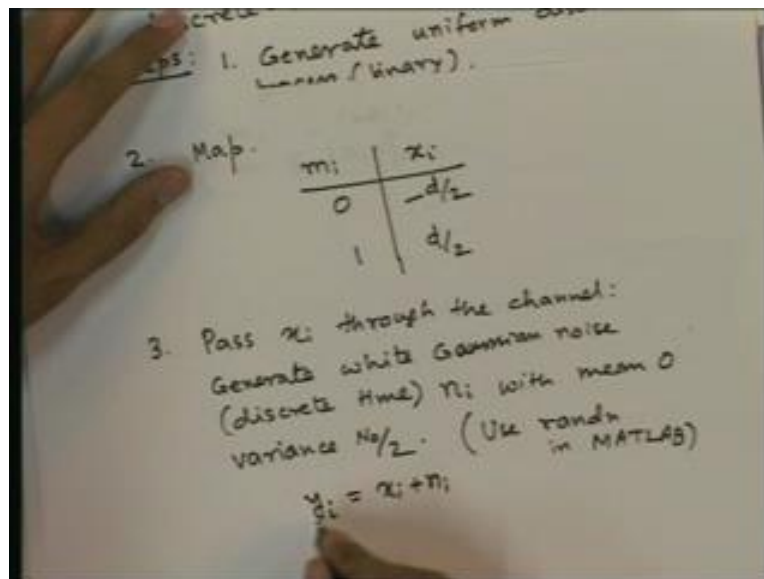 1. Generate uniform
(binary).
2. Map.
mi xi
0 -d/2
1 d/2
3. Pass xi through the channel:
Generate white Gaussian noise
(discrete time) ni with mean 0
variance No/2. (Use randn
in MATLAB)
yi = xi + ni